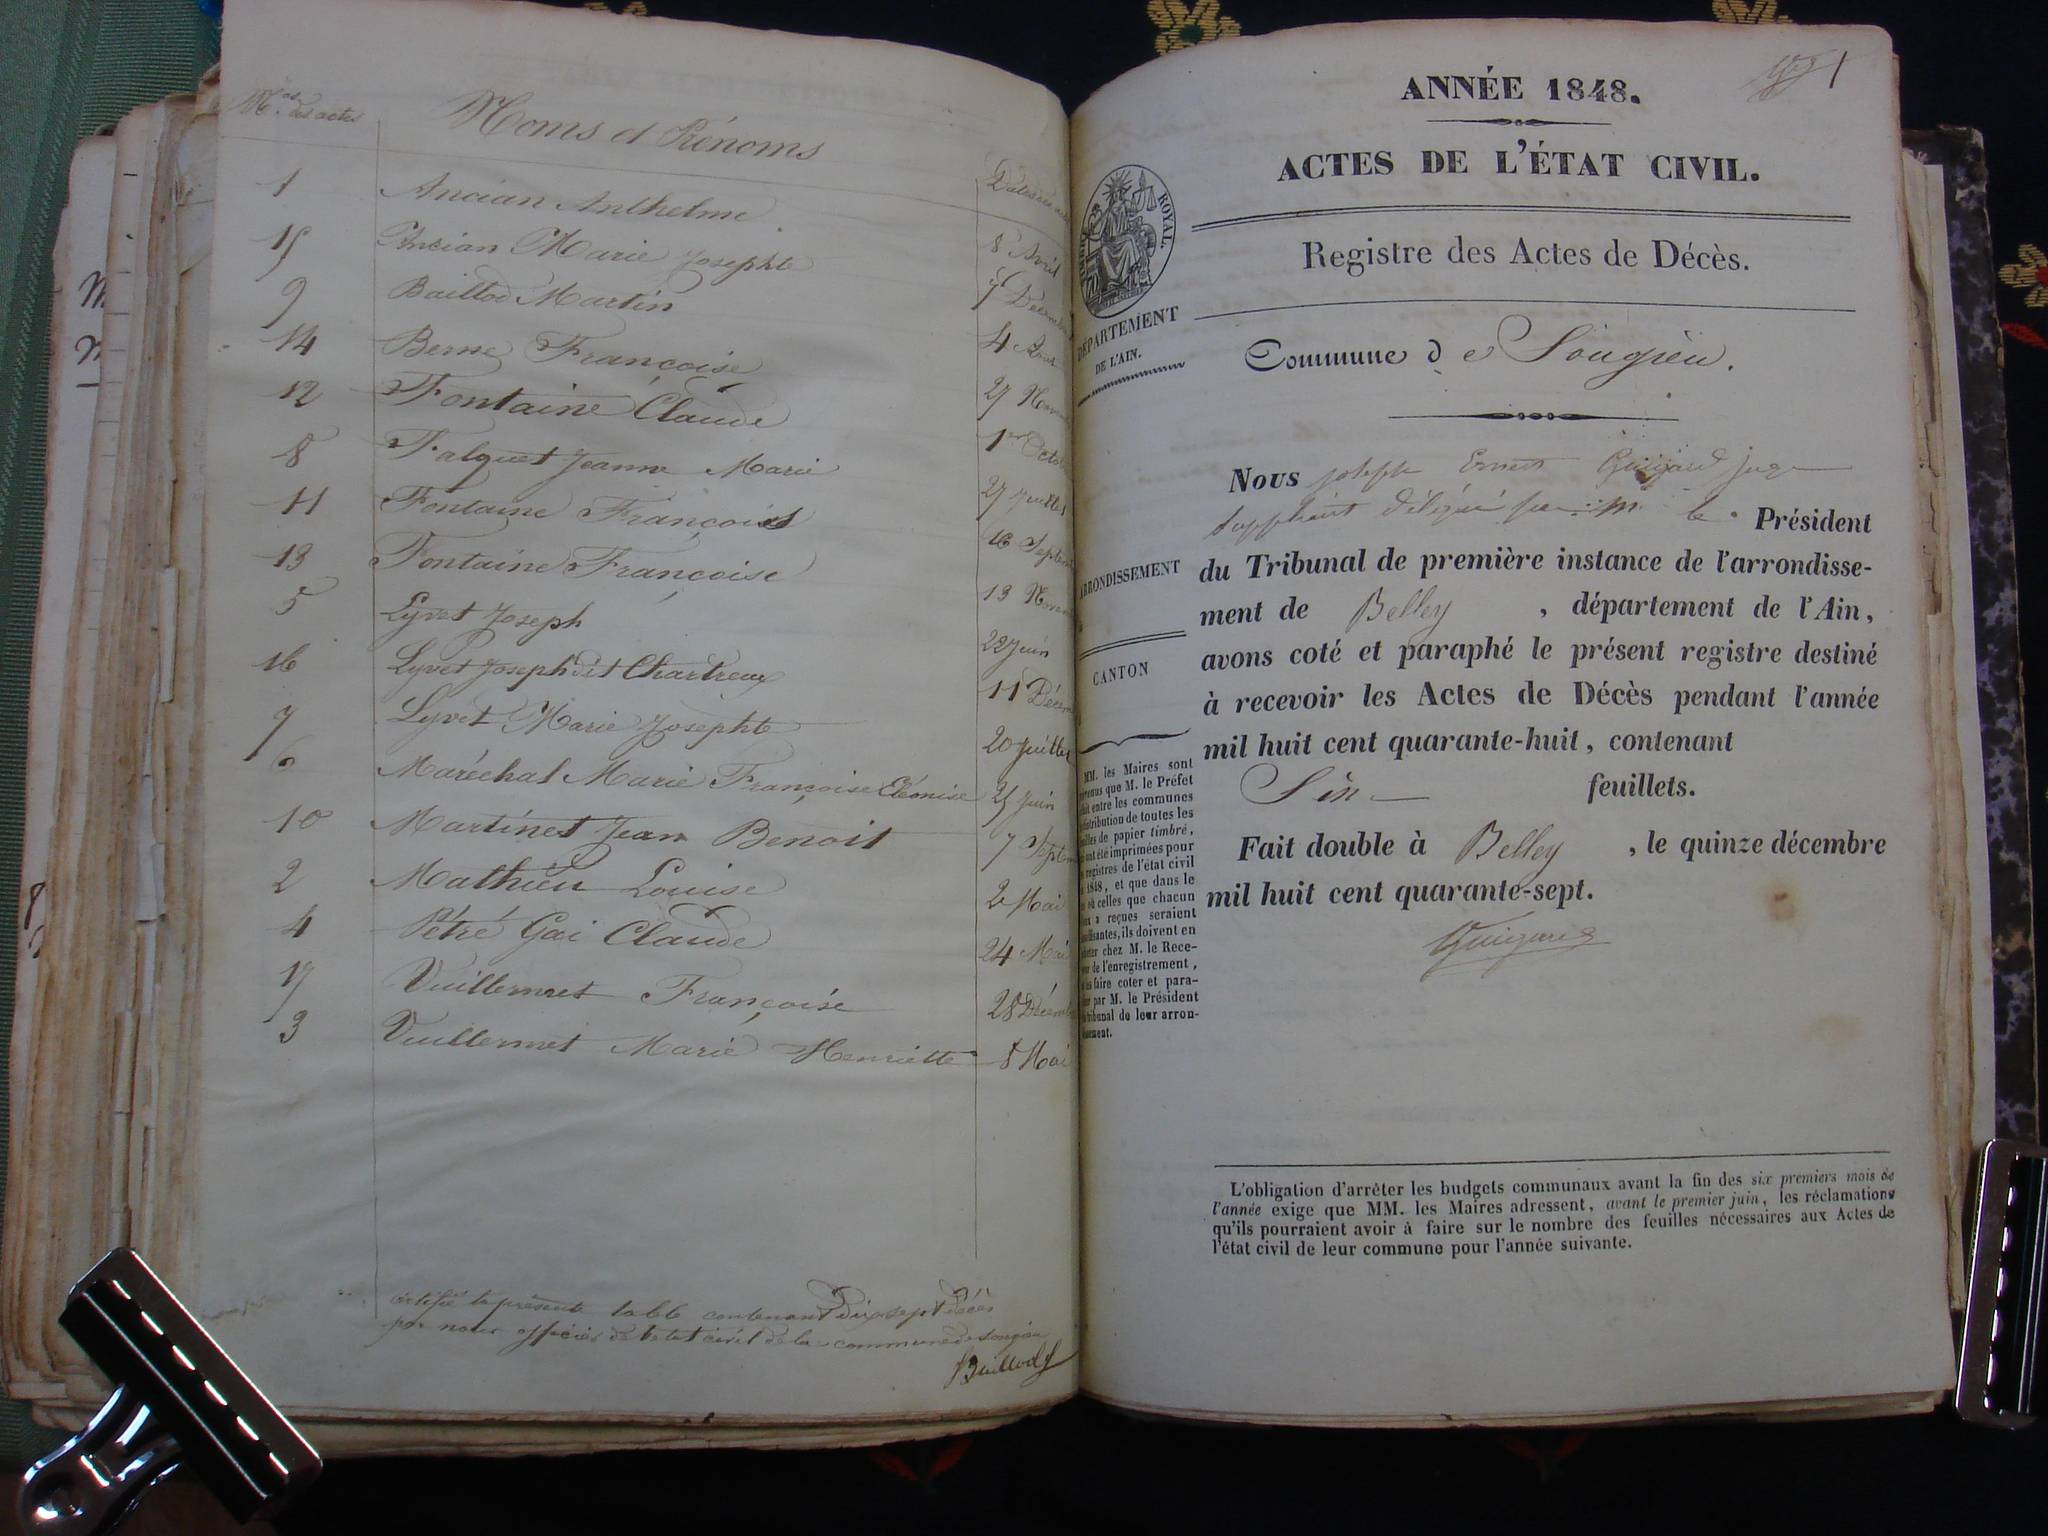 Nos des actes
Noms et Prénoms
Dates des
1 Ancian Anthelme 8 Avril
15 Ancian Marie Josephte 7 Décembre
9 Baillod Martin 4 Aout
14 Berne Françoise 27 Novem
12 Fontaine Claude 1er Octob
8 Falquet Jeanne Marie 27 Juillet
11 Fontaine François 16 Septem
13 Fontaine Françoise 13 Novem
5 Lyvet Joseph 22 Juin
16 Lyvet Joseph dit Chartreux 11 Décem
7 Lyvet Marie Josephte 20 Juillet
6 Maréchal Marie Françoise Eléonise 25 Juin
10 Martinet Jean Benoit 7 Septem
2 Mathieu Louise 2 Mai
4 Pétré Gai Claude 24 Mai
17 Vuillermet Françoise 28 Décemb
3 Vuillermet Marie Henriette 8 Mai
certifié la présente table contenant Dix sept décès
par nous officier de l'état civil de la commune de Songieu
Baillod
1
ANNÉE 1848.
ACTES DE L'ÉTAT CIVIL.
ROYAL.
Registre des Actes de Décès.
DÉPARTEMENT
DE L'AIN.
Commune de Songieu.
Nous joseph Ernest Guigard juge
suppléant délégué par m. le Président
du Tribunal de première instance de l'arrondisse-
ment de Belley, département de l'Ain,
avons coté et paraphé le présent registre destiné
à recevoir les Actes de Décès pendant l'année
mil huit cent quarante-huit, contenant
Six feuillets.
Fait double à Belley, le quinze décembre
mil huit cent quarante-sept.
Guigard
ARRONDISSEMENT
CANTON
MM. les Maires sont
venus que M. le Préfet
fait entre les communes
distribution de toutes les
feuilles de papier timbré,
ont été imprimées pour
registres de l'état civil
1848, et que dans le
où celles que chacun
a reçues seraient
suffisantes, ils doivent en
acheter chez M. le Rece-
de l'enregistrement,
faire coter et para-
par M. le Président
tribunal de leur arron-
dissement.
L'obligation d'arrêter les budgets communaux avant la fin des six premiers mois de
l'année exige que MM. les Maires adressent, avant le premier juin, les réclamations
qu'ils pourraient avoir à faire sur le nombre des feuilles nécessaires aux Actes de
l'état civil de leur commune pour l'année suivante.